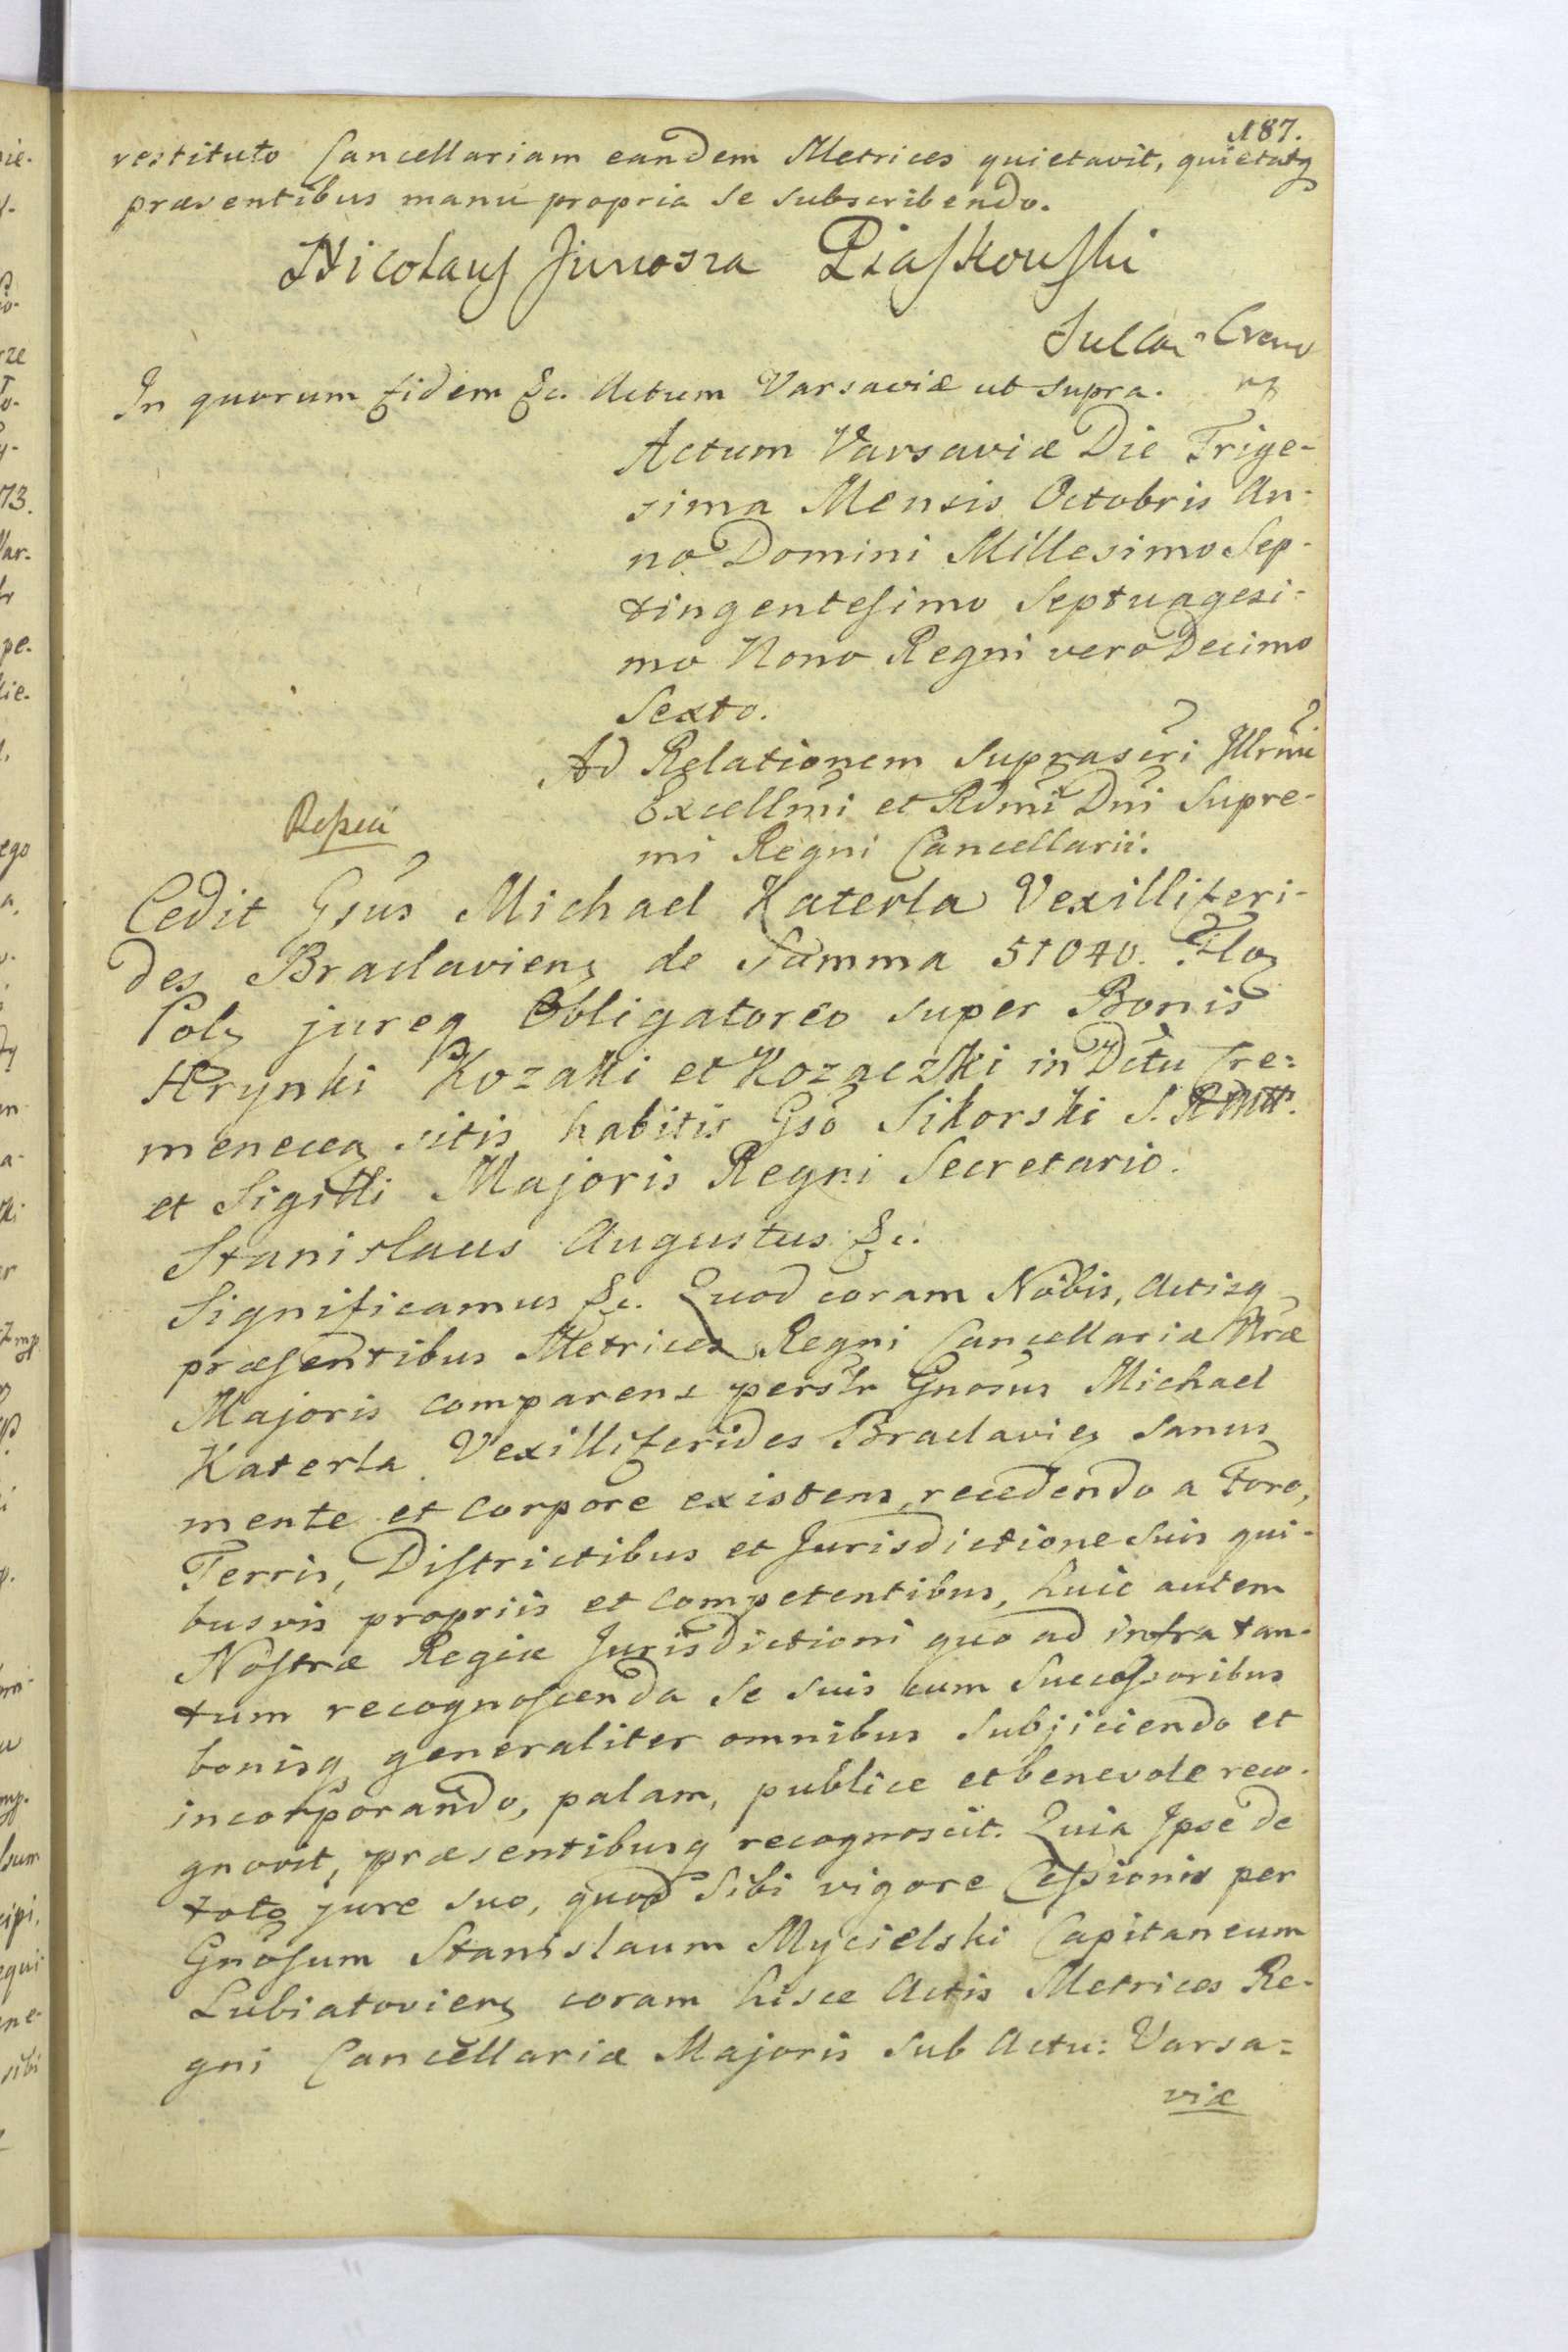 187.
restituto Cancellariam eandem Metrices quietavit, quietatq
præsentibus manu propria se subscribendo.
Nicolaus Junosza Piaskowski
In quorum fidem &c. Actum Varsaviæ ut supra.
Actum Varsaviæ Die Trige-
sima Mensis Octobris An-
no Domini Millesimo Sep-
tingentesimo Septuagesi-
mo Nono Regni vero Decimo
Sexto.
Ad Relationem Suprascri Illrmi
Excellmi et Rdmi Dni Supre-
mi Regni Cancellarii.
Cedit Gsus Michael Katerla Vexilliferi-
des Braclaviens de Summa 51040. Flo
Pol jureq Obligatoreo super Bonis
Hrynki Kozaki et Kozaczki in Dctu Cre-
menecen sitis habitis Gso Sikorski S.
et Sigilli Majoris Regni Secretario.
Stanislaus Augustus &c.
Significamus &c. Quod coram Nobis, Actisq
præsentibus Metrices Regni Cancellariæ Nræ
Majoris comparens perslr Gnosus Michael
Katerla Vexilliferides Braclavien sanus
mente et corpore existens, recedendo a Foro,
Terris, Districtibus et Jurisdictione suis qui-
busvis propriis et competentibus, huic autem
Nostræ Regiæ Jurisdictioni quo ad infra tan-
tum recognoscenda se suis cum Successoribus
bonisq generaliter omnibus subjiciendo et
incorporando, palam, publice et benevole reco-
gnovit, præsentibusq recognoscit. Quia Ipse de
toto jure suo, quod sibi vigore Cessionis per
Gnosum Stanislaum Mycielski Capitaneum
Lubiatoviens coram hisce Actis Metrices Re-
gni Cancellariæ Majoris sub Actu: Varsa-
viæ